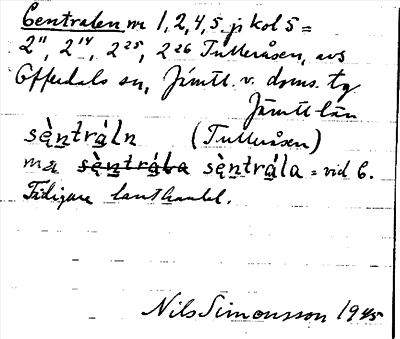 Centralen m 1, 2, 4, 5 p kol 5 =
2¹¹, 2¹⁴, 2²⁵, 2²⁶ Tulleråsen, avs
Offerdals sn, Jämtl. v. doms. tg
Jämtl län
sè̱ntrá̱ln (Tulleråsen)
mä sè̱ntrá̱la sè̱ntrá̱la = vid C.
Tidigare lanthandel.
Nils Simonsson 1945